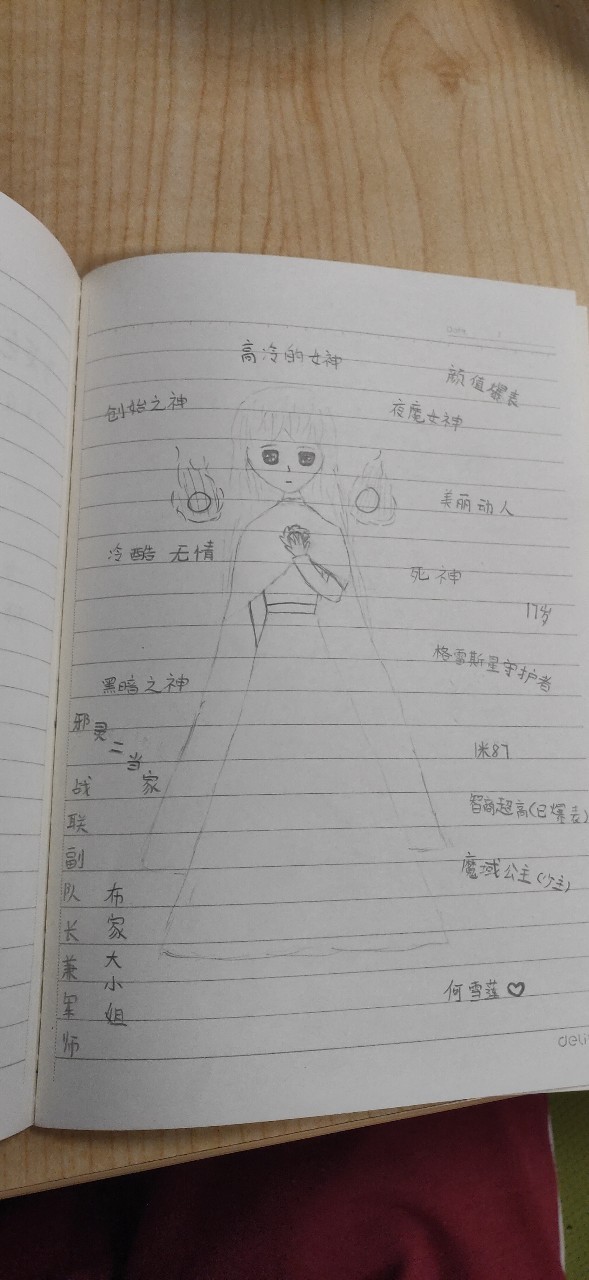 高冷的女神
颜值爆表
创始之神
夜魔女神
美丽动人
冷酷无情
死神
17岁
格雷斯星守护者
黑暗之神
邪灵二当家
1米87
智商超高(已爆表)
魔域公主(少主)
战联副队长兼军师
布家大小姐
何雪莲♡
deli